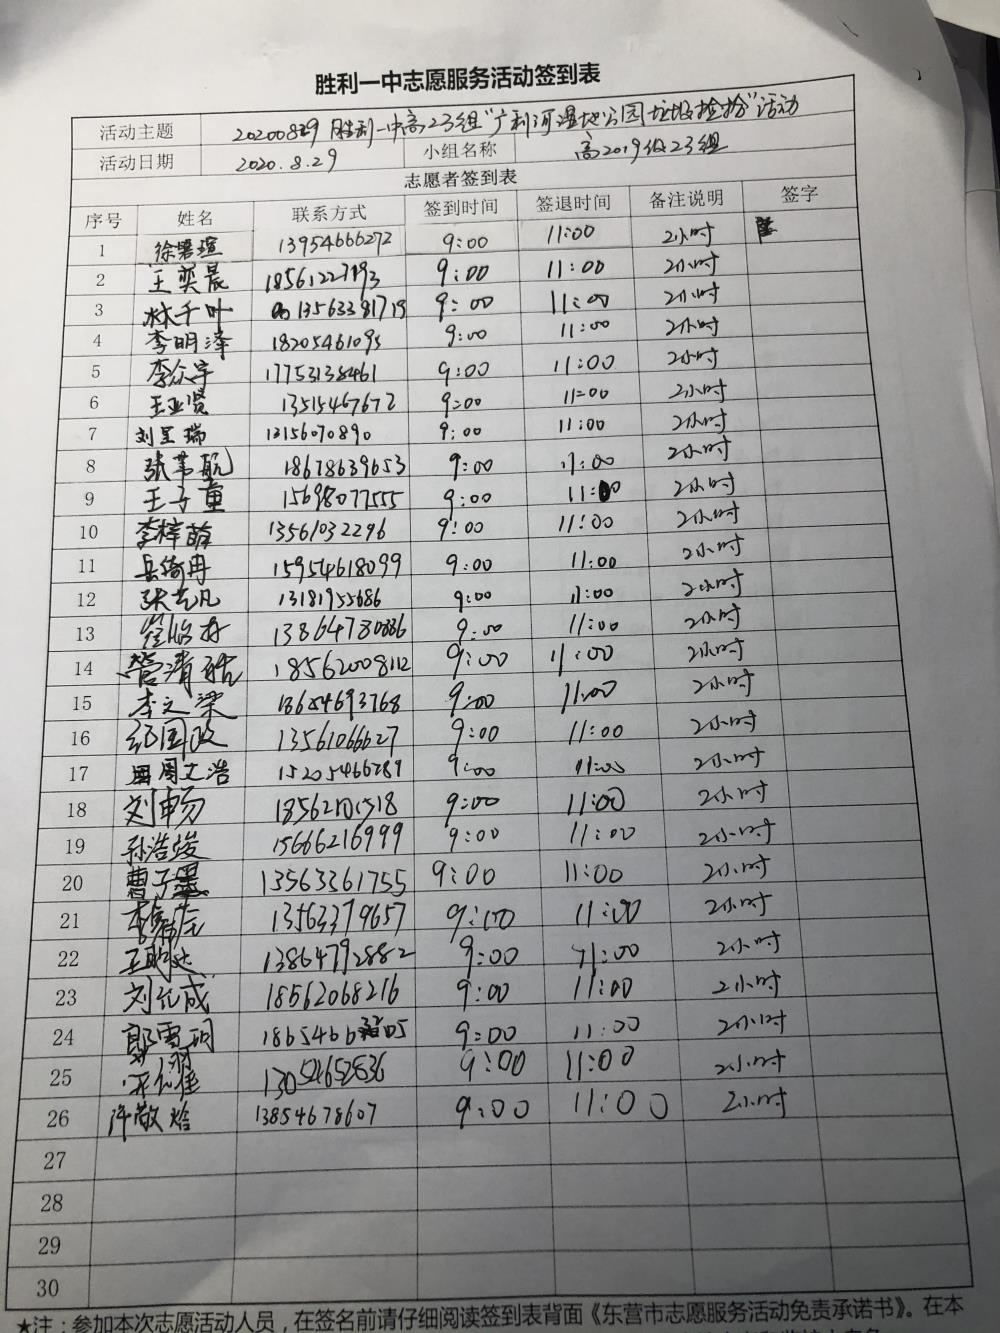 胜利一中志愿服务活动签到表
活动主题 20200829 胜利一中高23组“广利河湿地公园垃圾捡拾”活动
活动日期 2020.8.29 小组名称 高2019级23组
志愿者签到表
序号 姓名 联系方式 签到时间 签退时间 备注说明 签字
1 徐 瑄 13954666272 9:00 11:00 2小时
2 王奕晨 9:00 11:00 2小时
3 林千叶 13563381719 9:00 11:00 2小时
4 李明泽 18205461093 9:00 11:00 2小时
5 李尔宇 17753138461 9:00 11:00 2小时
6 王亚贤 13515467672 9:00 11:00 2小时
7 刘呈瑞 13156070890 9:00 11:00 2小时
8 张苇航 18678639653 9:00 11:00 2小时
9 王子童 15698077555 9:00 11:00 2小时
10 李梓萌 13561032296 9:00 11:00 2小时
11 岳绮冉 15954618099 9:00 11:00 2小时
12 张艺凡 13181955686 9:00 11:00 2小时
13 9:00 11:00 2小时
14 管清 18562008112 9:00 11:00 2小时
15 李之梁 18654693768 9:00 11:00 2小时
16 纪国政 13561066627 9:00 11:00 2小时
17 周文浩 15205466789 9:00 11:00 2小时
18 刘畅 9:00 11:00 2小时
19 孙浩焌 15666216999 9:00 11:00 2小时
20 曹子墨 13563361755 9:00 11:00 2小时
21 李 13563379657 9:00 11:00 2小时
22 王 达 13864792882 9:00 11:00 2小时
23 刘 成 18562068216 9:00 11:00 2小时
24 雪玥 9:00 11:00 2小时
25 13054652836 9:00 11:00 2小时
26 许敬焓 13854678607 9:00 11:00 2小时
27
28
29
30
★注：参加本次志愿活动人员，在签名前请仔细阅读签到表背面《东营市志愿服务活动免责承诺书》。在本